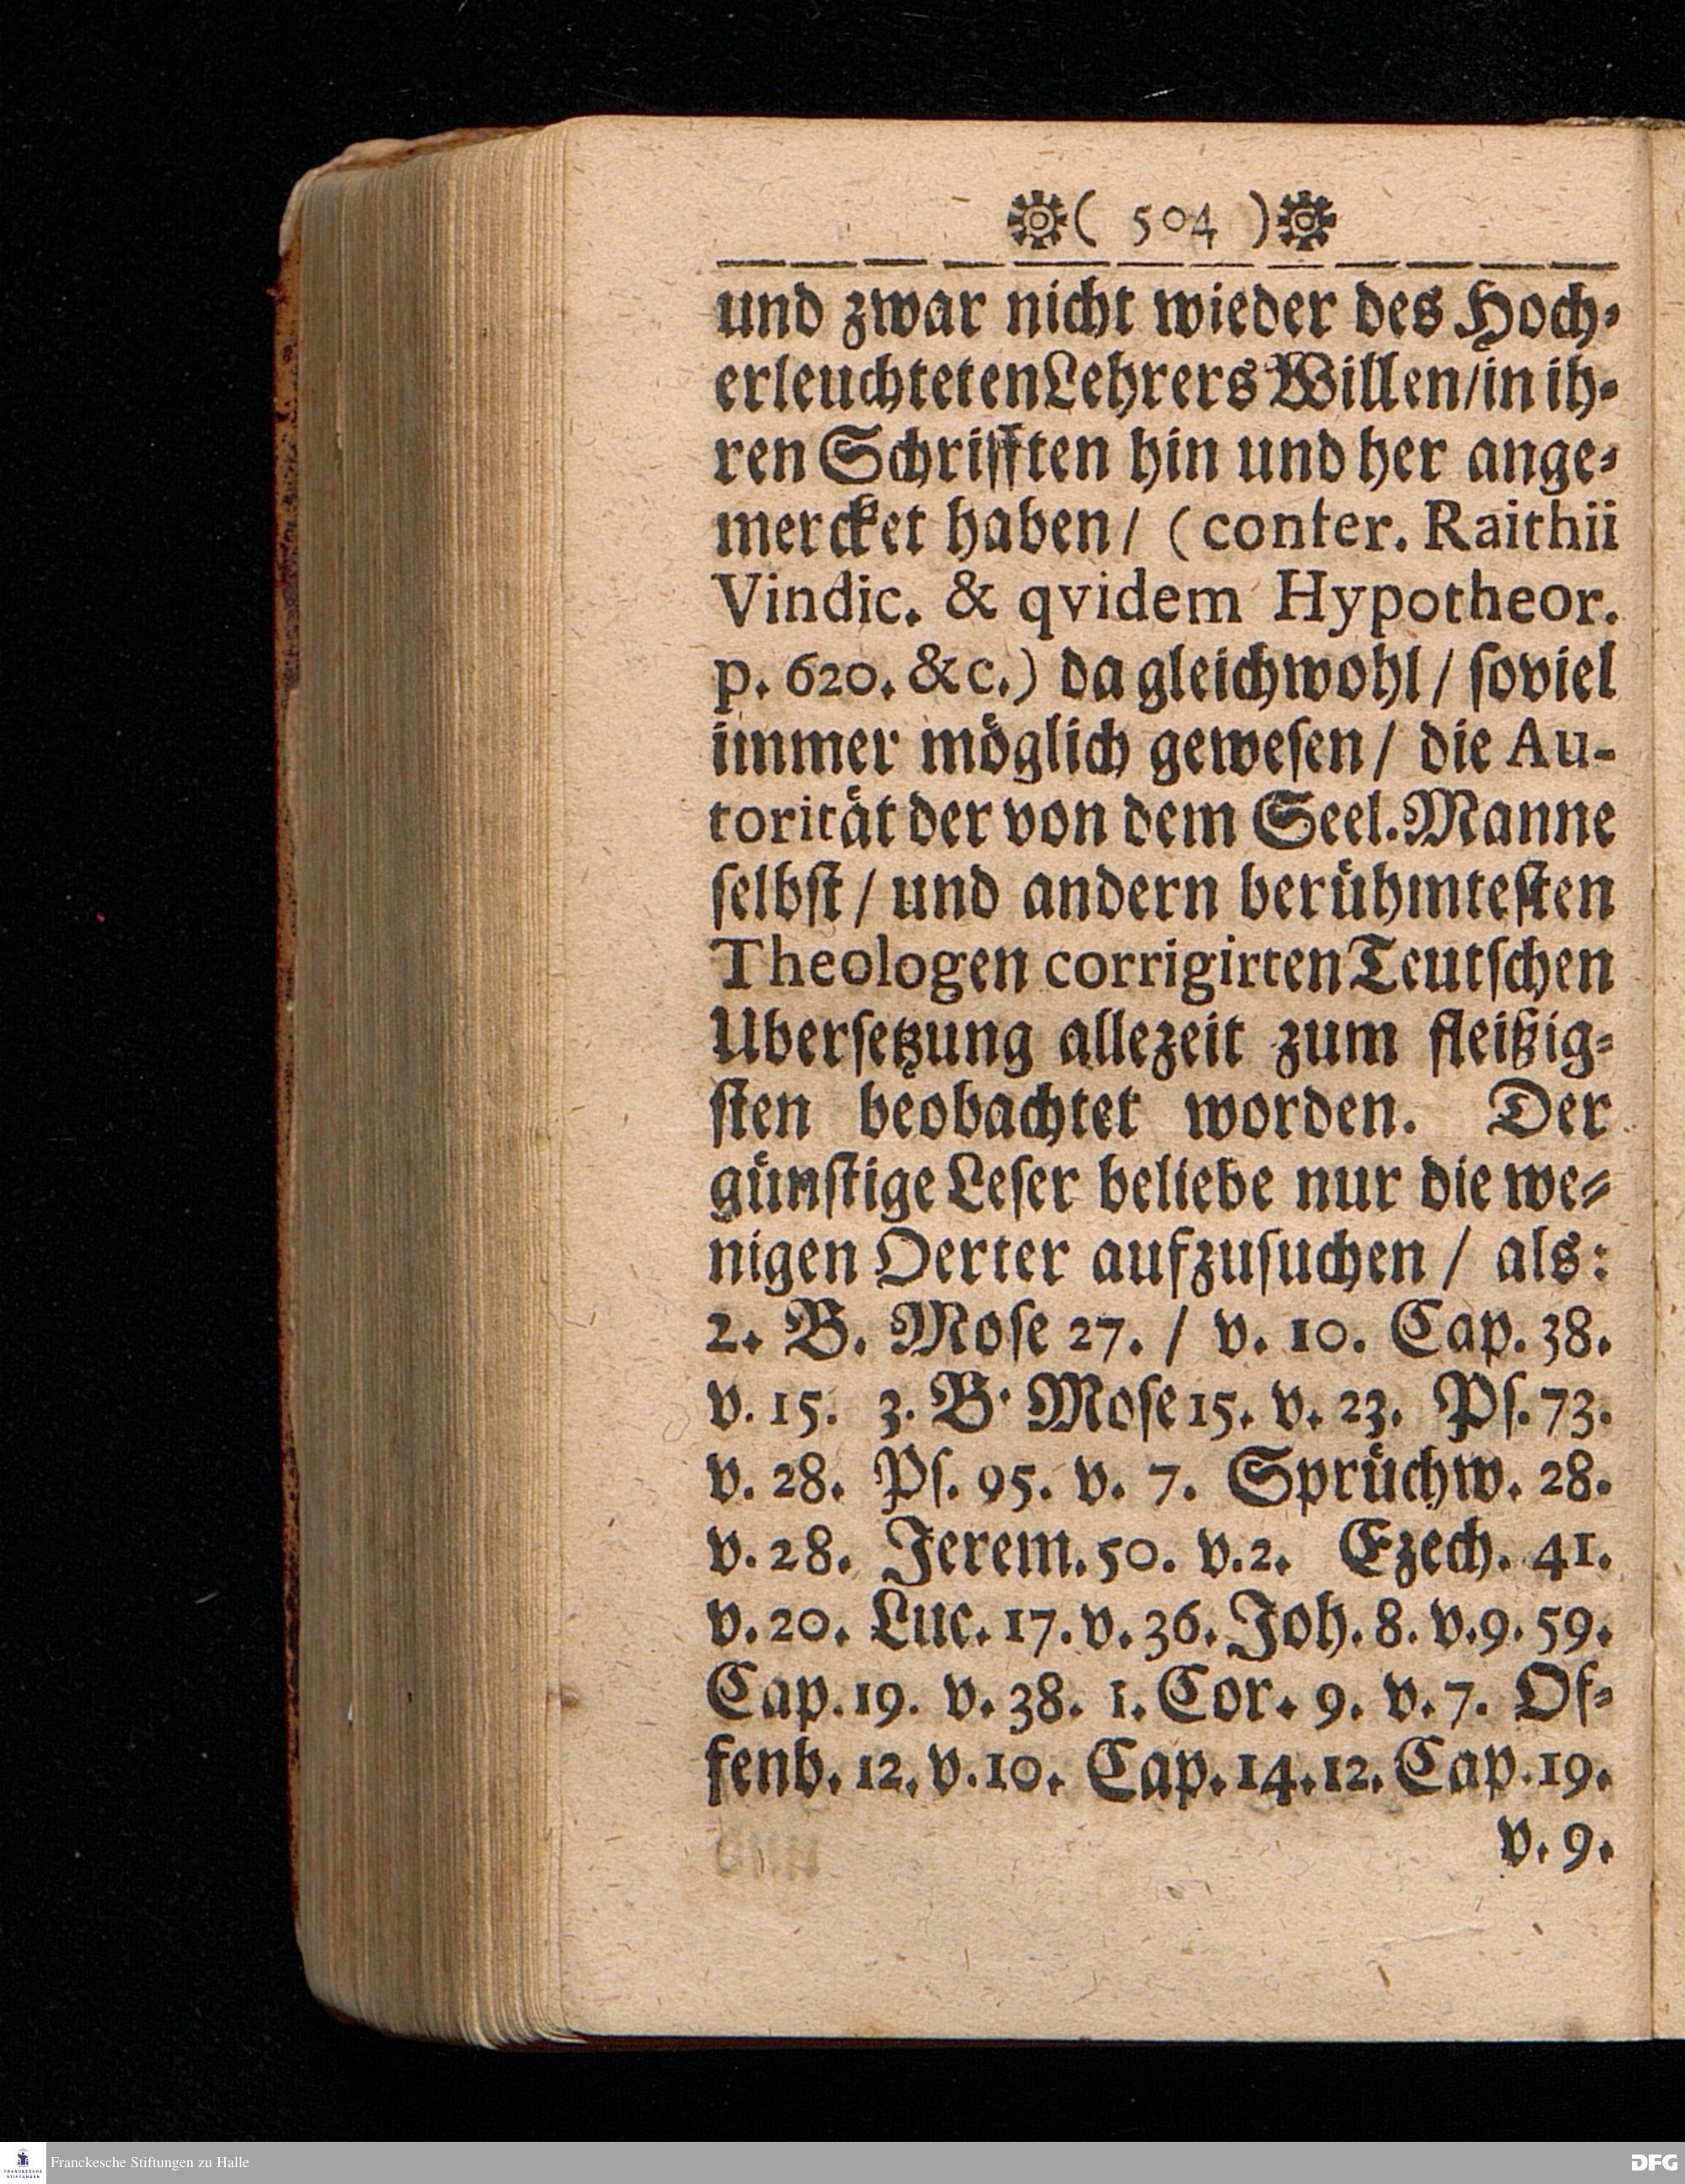 ( 504 )
und zwar nicht wieder des Hoch-
erleuchteten Lehrers Willen/in ih-
ren Schrifften hin und her ange-
mercket haben/ (confer. Raithii
Vindic. & qvidem Hypotheor.
p. 620. &c.) da gleichwohl / soviel
immer möglich gewesen / die Au-
torität der von dem Seel. Manne
selbst / und andern berühmtesten
Theologen corrigirten Teutschen
Ubersetzung allezeit zum fleißig-
sten beobachtet worden. Der
günstige Leser beliebe nur die we-
nigen Oerter aufzusuchen / als:
2. B. Mose 27. / v. 10. Cap. 38.
v. 15. 3. B. Mose 15. v. 23. Ps. 73.
v. 28. Ps. 95. v. 7. Sprüchw. 28.
v. 28. Jerem. 50. v. 2. Ezech. 41.
v. 20. Luc. 17. v. 36. Joh. 8. v. 9. 59.
Cap. 19. v. 38. 1. Cor. 9. v. 7. Of-
fenb. 12. v. 10. Cap. 14. 12. Cap. 19.
v. 9.
FRANCKESCHE STIFTUNGEN
Franckesche Stiftungen zu Halle
DFG